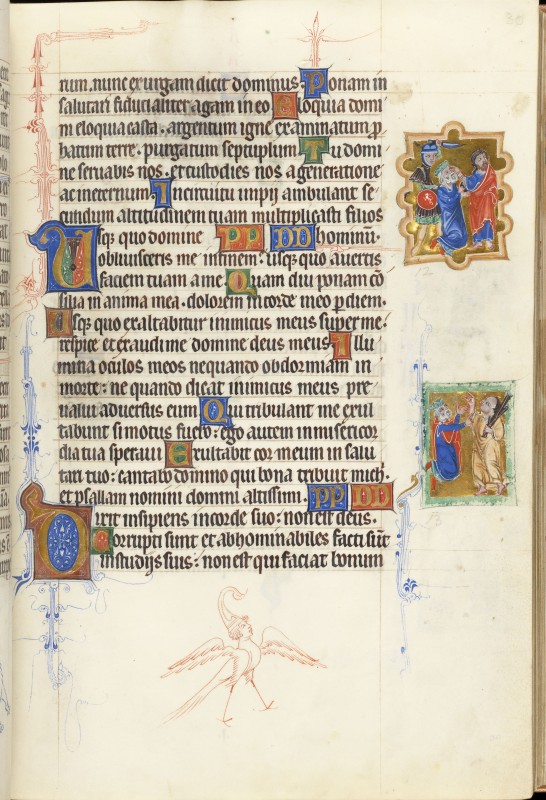 rum. nunc exurgam dicit dominus. Ponam in
salutari fiducialiter agam in eo Eloquia domi
ni eloquia casta. argentum igne examinatum p
batum terre. purgatum septuplum Tu domi
ne servabis nos. et custodies nos a generatione
ac ineternum. Incircuitu impii ambulant se
cundum altitudinem tuam multiplicasti filios
Usq; quo domine PP DD hominum.
obliviscens me infinem: usq; quo avertis
faciem tuam a me Quam diu ponam co
silia in anima mea. dolorem incorde meo p diem.
Usq; quo exaltabitur inimicus meus super me.
respice et exaudi me domine deus meus Illu
mina oculos meos nequando obdormiam in
morte: ne quando dicat inimicus meus pre
valui adversus eum Qui tribulant me exul
tabunt si motus fuero: ego autem in misericor
dia tua speravi Exultabit cor meum in salu
tari tuo: cantabo domino qui bona tribuit mich.
et psallam nomini domini altissimi. PP DD
Dixit insipiens incorde suo: non est deus.
Corrupti sunt et abhominabiles facti sut
instudijs suis: non est qui faciat bonum
30
12
13